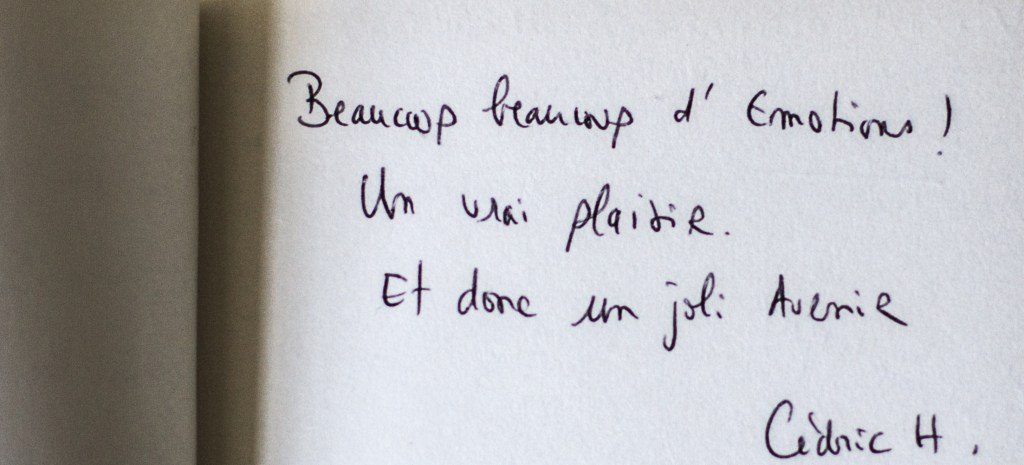 Beaucoup beaucoup d'Emotions !
Un vrai plaisir.
Et donc un joli Avenir
Cédric H.